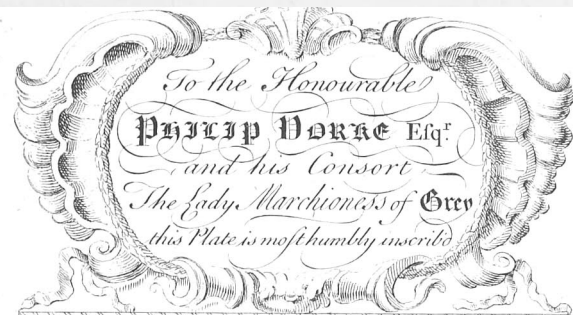 To the Honourable
PHILIP YORKE Eſqʳ
and his Consort
The Lady Marchioness of Grey
this Plate is moſt humbly inscrib'd